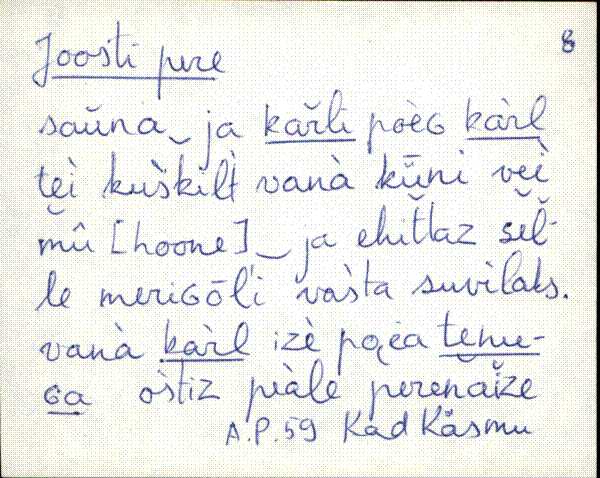 Joosti pere
8
sau̮na‿ja kar̆li poèɢ kàrl
tèi kuškilt vanà kūni vèi
mû [hoone]‿ja ehit̆taz sel̆-
le meriɢōl'i vàsta suvilaks.
vanà kàrl izè pąèa temu-
ɢa òstiz pèàle perenaize
A.P. 59 Kad Käsmu